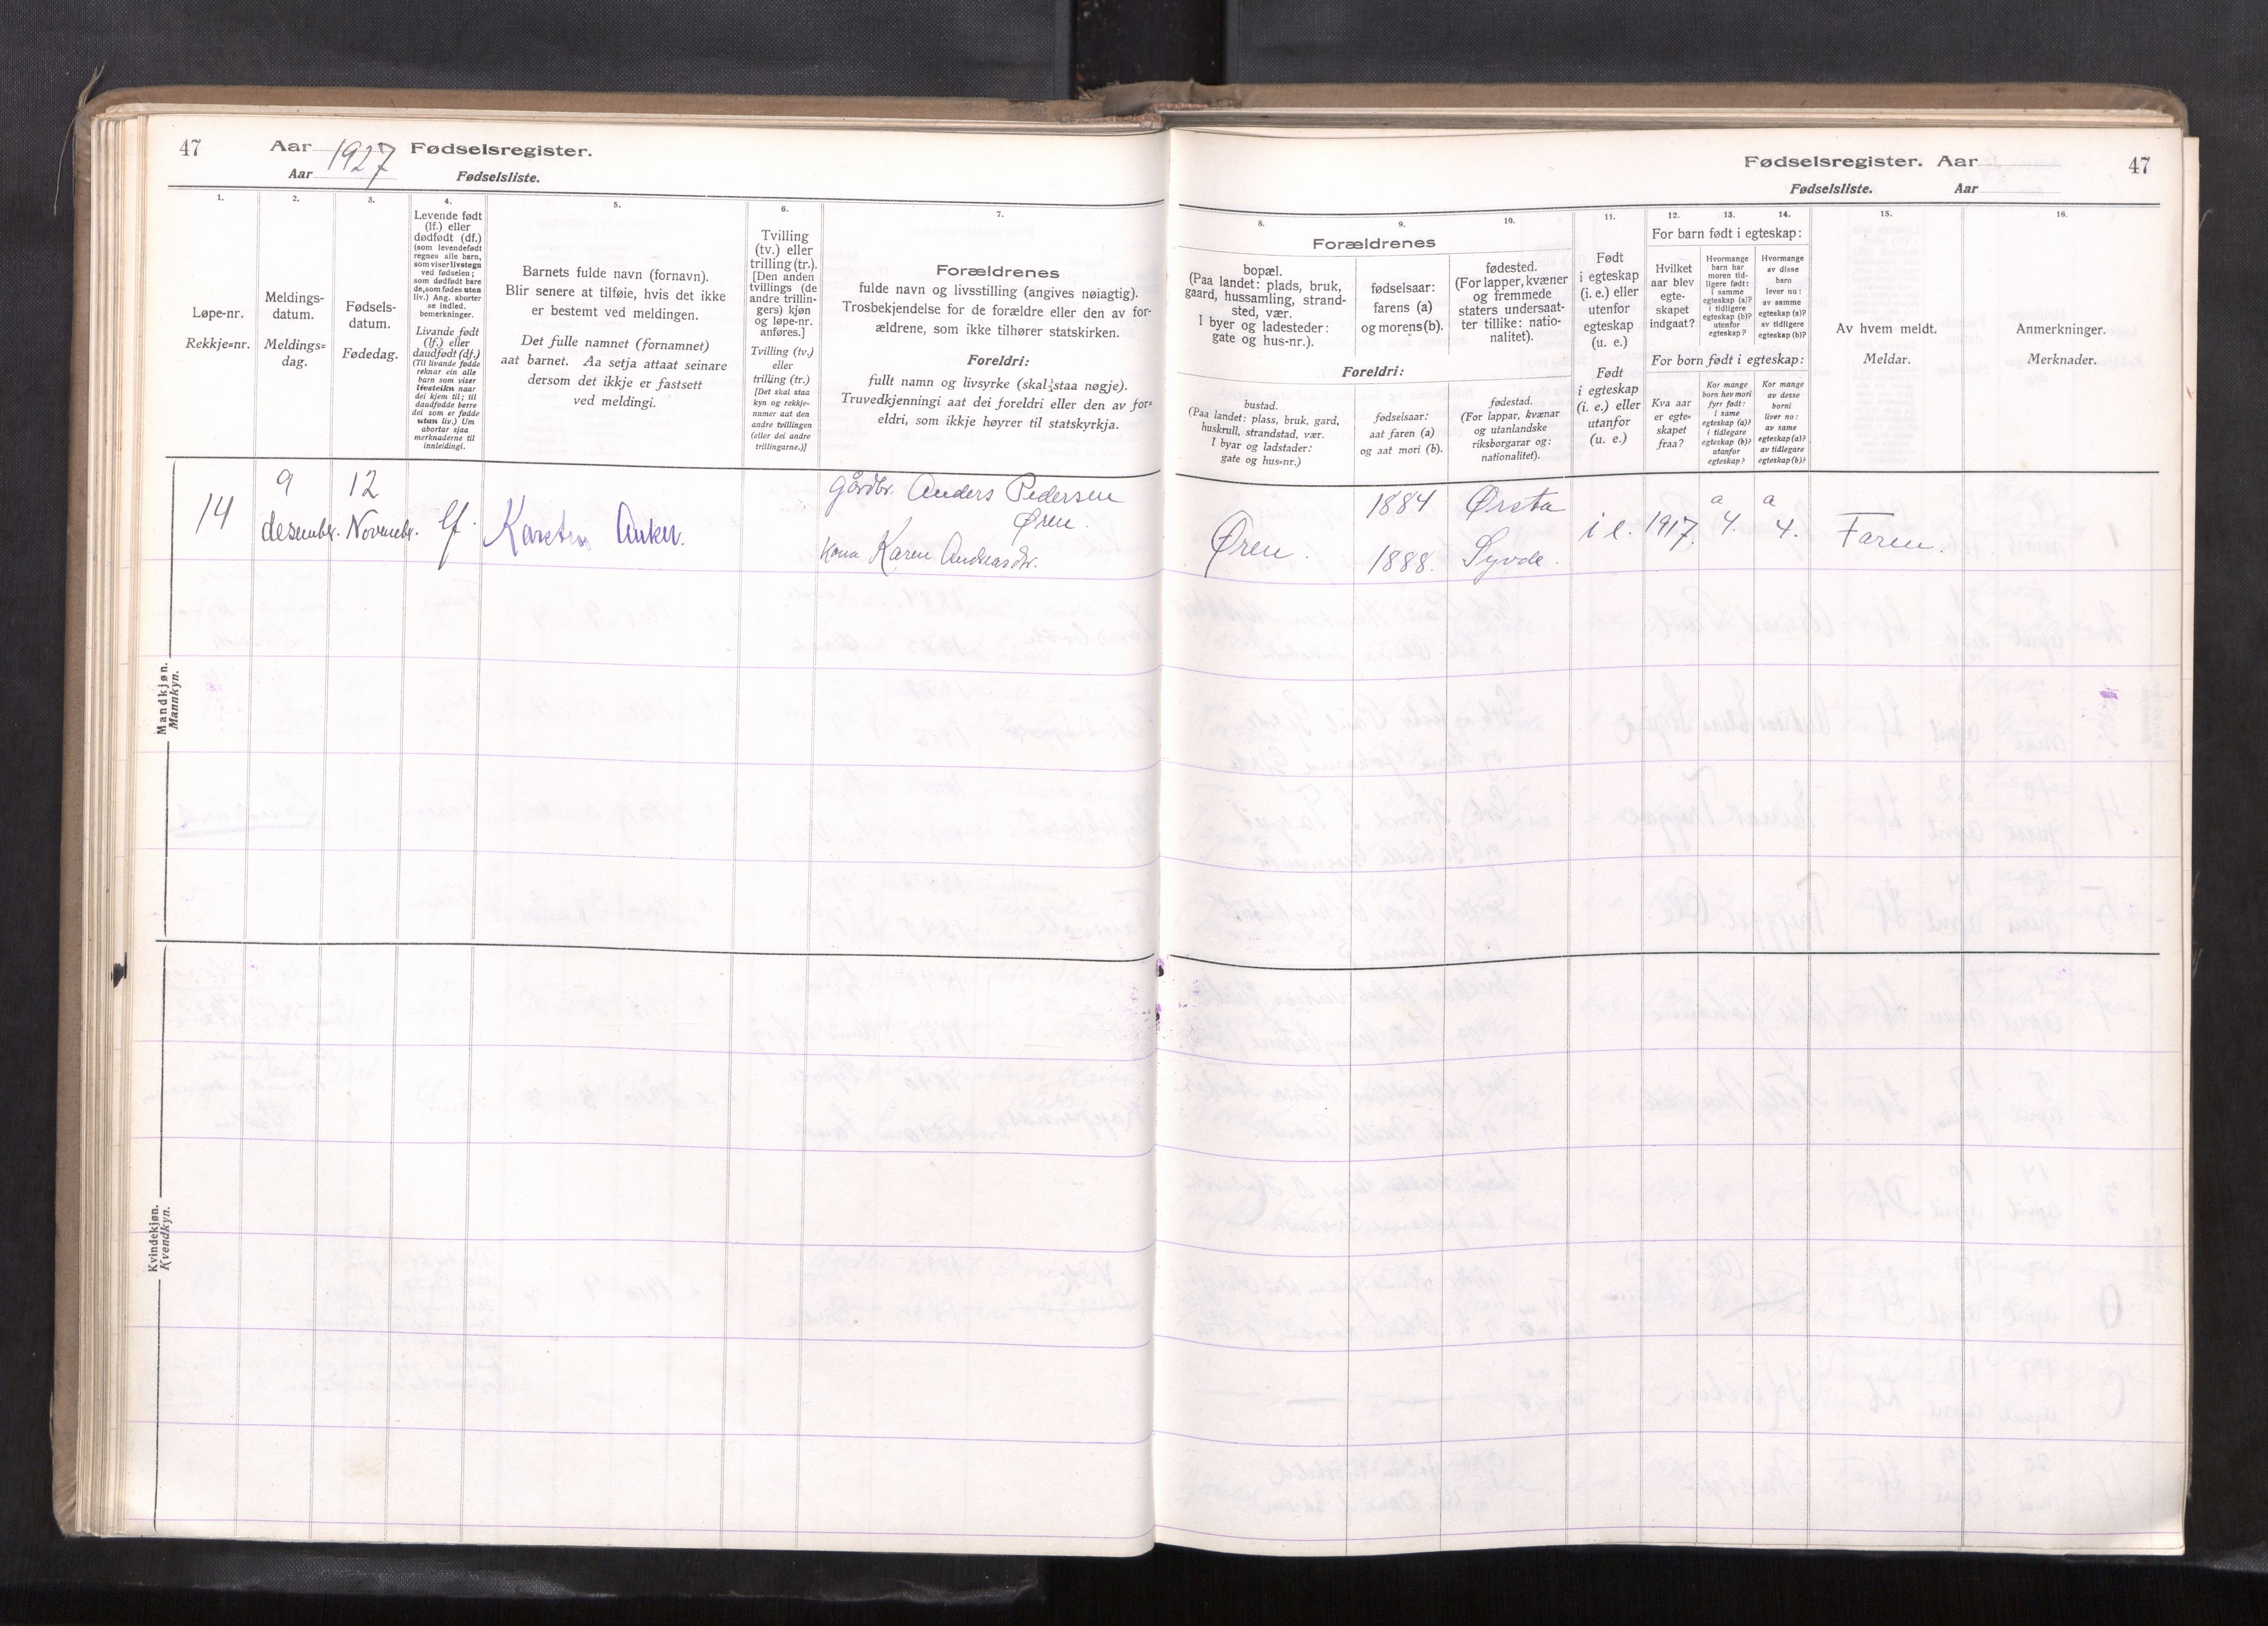 47
Aar 1927 Fødselsregister.
Aar Fødselsliste.
1.
Løpe-nr.
Rekkje=nr.
2.
Meldings-
datum.
Meldings=
dag.
3.
Fødsels-
datum.
Fødedag.
4.
Levende født
(lf.) eller
dødfødt (df.)
(som levendefødt
regnes alle barn,
som viser livstegn
ved fødselen;
som dødfødt bare
de, som fødes uten
liv.) Ang. aborter
se indled.
bemerkninger.
Livande født
(lf.) eller
daudfødt (df.)
(Til livande fødde
reknar ein alle
barn som viser
livsteikn naar
dei kjem til; til
daudfødde berre
dei som er fødde
utan liv.) Um
abortar sjaa
merknaderne til
innleidingi.
5.
Barnets fulde navn (fornavn).
Blir senere at tilføie, hvis det ikke
er bestemt ved meldingen.
Det fulle namnet (fornamnet)
aat barnet. Aa setja attaat seinare
dersom det ikkje er fastsett
ved meldingi.
6.
Tvilling
(tv.) eller
trilling (tr.).
[Den anden
tvillings (de
andre trillin-
gers) kjøn
og løpe-nr.
anføres.]
Tvilling (tv.)
eller
trilling (tr.)
[Det skal staa
kyn og rekkje-
numer aat den
andre tvillingen
(eller dei andre
trillingarne.)]
7.
Forældrenes
fulde navn og livsstilling (angives nøiagtig).
Trosbekjendelse for de forældre eller den av for-
ældrene, som ikke tilhører statskirken.
Foreldri:
fullt namn og livsyrke (skal staa nøgje).
Truvedkjenningi aat dei foreldri eller den av for=
eldri, som ikkje høyrer til statskyrkja.
Mandkjøn.
Mannkyn.
14
9
desembr.
12
Novembr.
lf.
Karsten Anker.
Gårdbr. Anders Pedersen
Øren.
Kona Karen Andreasdtr.
Kvindekjøn.
Kvendkyn.
Fødselsregister. Aar
47
Fødselsliste. Aar
8.
9.
10.
Forældrenes
bopæl.
(Paa landet: plads, bruk,
gaard, hussamling, strand-
sted, vær.
I byer og ladesteder:
gate og hus-nr.).
fødselsaar:
farens (a)
og morens (b).
fødested.
(For lapper, kvæner
og fremmede
staters undersaat-
ter tillike: natio-
nalitet).
Foreldri:
bustad.
(Paa landet: plass, bruk, gard,
huskrull, strandstad, vær.
I byar og ladstader:
gate og hus=nr.)
fødselsaar:
aat faren (a)
og aat mori (b).
fødestad.
(For lappar, kvænar
og utanlandske
riksborgarar og:
nationalitet).
11.
Født
i egteskap
(i. e.) eller
utenfor
egteskap
(u. e.)
Født
i egteskap
(i. e.) eller
utanfor
(u. e.)
12.
13.
14.
For barn født i egteskap:
Hvilket
aar blev
egte-
skapet
indgaat?
Hvormange
barn har
moren tid-
ligere født:
i samme
egteskap (a)?
i tidligere
egteskap (b)?
utenfor
egteskap?
Hvormange
av disse
barn
lever nu:
av samme
egteskap (a)?
av tidligere
egteskap (b)?
For born født i egteskap:
Kva aar
er egte=
skapet
fraa?
Kor mange
born hev mori
fyrr født:
i same
egteskap (a)?
i tidlegare
egteskap (b)?
utanfor
egteskap?
Kor mange
av desse
borni
liver no:
av same
egteskap (a)?
av tidlegare
egteskap (b)?
15.
Av hvem meldt.
Meldar.
16.
Anmerkninger.
Merknader.
Øren.
1884
1888.
Ørsta
Syvde.
i e.
1917.
a
4.
a
4.
Faren.